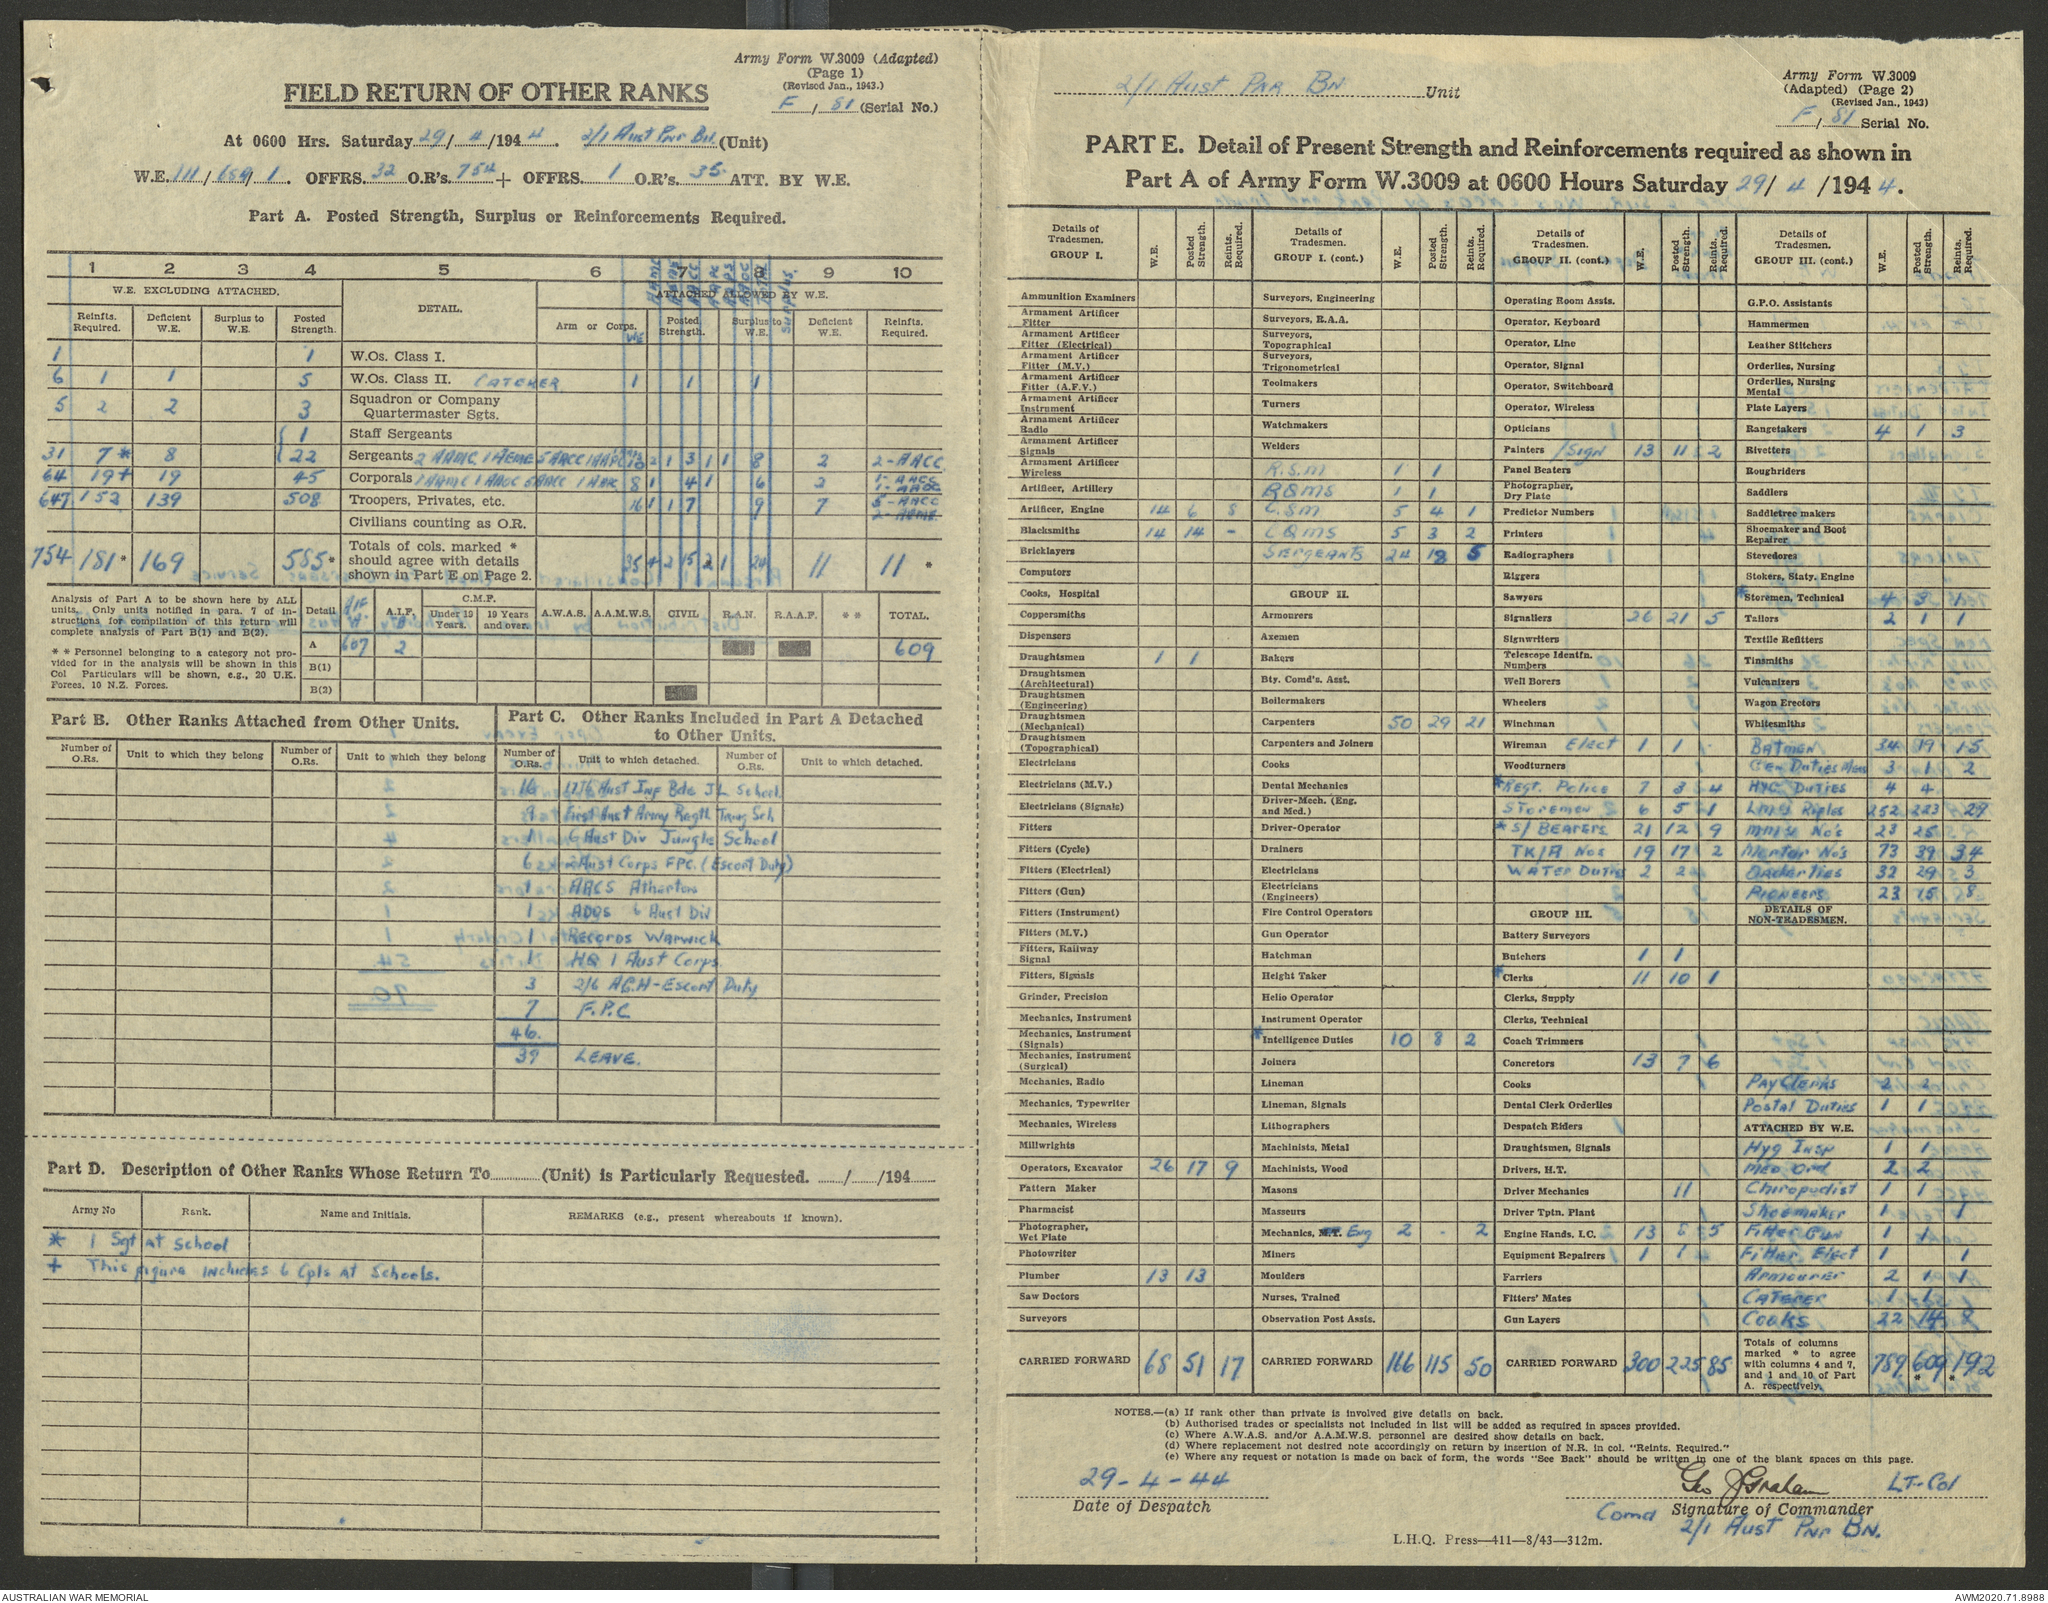 Army Form W.3009 (Adapted)
(Page 1)
(Revised Jan., 1943.)
F / 81 (Serial No.)
FIELD RETURN OF OTHER RANKS
At 0600 Hrs. Saturday 29/4/1944. 2/1 Aust Pnr Bn (Unit)
W.E. 111/ 1. OFFRS. 32 O.R's. 754 + OFFRS. 1 O.R's. 35 ATT. BY W.E.
Part A. Posted Strength, Surplus or Reinforcements Required.
1 2 3 4 5 6 7 8 9 10
W.E. EXCLUDING ATTACHED. DETAIL. ATTACHED ALLOWED BY W.E.
Reinfts. Required. Deficient W.E. Surplus to W.E. Posted Strength. Arm or Corps. Posted Strength. Surplus to W.E. Deficient W.E. Reinfts. Required.
1 1 W.Os. Class I.
6 1 1 5 W.Os. Class II. CATERER 1 1 1
5 2 2 3 Squadron or Company Quartermaster Sgts.
1 Staff Sergeants
31 7* 8 22 Sergeants 2 AAMC 1 AEME 5 AACC 1 AAPC 10 2 1 3 1 1 8 2 2-AACC
64 19+ 19 45 Corporals 1 AAMC 1 AAOC 5 AACC 8 1 4 1 6 2 1-AACC 1-AAOC
647 152 139 508 Troopers, Privates, etc. 16 1 1 7 9 7 5-AACC 2-AEME
Civilians counting as O.R.
754 181* 169 585* Totals of cols. marked * should agree with details shown in Part E on Page 2. 35 4 2 15 2 1 24 11 11 *
Analysis of Part A to be shown here by ALL units. Only units notified in para. 7 of instructions for compilation of this return will complete analysis of Part B(1) and B(2).
* * Personnel belonging to a category not provided for in the analysis will be shown in this Col Particulars will be shown, e.g., 20 U.K. Forces, 10 N.Z. Forces.
Detail A.I.F. C.M.F. Under 19 Years. 19 Years and over. A.W.A.S. A.A.M.W.S. CIVIL R.A.N. R.A.A.F. * * TOTAL.
A 607 2 609
B(1)
B(2)
Part B. Other Ranks Attached from Other Units.
Number of O.Rs. Unit to which they belong Number of O.Rs. Unit to which they belong
Part C. Other Ranks Included in Part A Detached to Other Units.
Number of O.Rs. Unit to which detached. Number of O.Rs. Unit to which detached.
16 17th Aust Inf Bde JL School
9 First Aust Army Regtl Trng Sch
1 6 Aust Div Jungle School
6 2 Aust Corps FPC. (Escort Duty)
1 AACS Atherton
1 ADOS 6 Aust Div
1 Records Warwick
1 HQ 1 Aust Corps
3 2/6 AGH-Escort Duty
7 F.P.C
46.
39 LEAVE.
Part D. Description of Other Ranks Whose Return To (Unit) is Particularly Requested. / /194
Army No Rank. Name and Initials. REMARKS (e.g., present whereabouts if known).
* 1 Sgt at School
+ This figure includes 6 Cpls at Schools.
2/1 Aust Pnr Bn Unit
Army Form W.3009
(Adapted) (Page 2)
(Revised Jan., 1943)
F / 81 Serial No.
PART E. Detail of Present Strength and Reinforcements required as shown in
Part A of Army Form W.3009 at 0600 Hours Saturday 29/4/1944.
Details of Tradesmen. GROUP I. W.E. Posted Strength. Reints. Required.
Ammunition Examiners
Armament Artificer Fitter
Armament Artificer Fitter (Electrical)
Armament Artificer Fitter (M.V.)
Armament Artificer Fitter (A.F.V.)
Armament Artificer Instrument
Armament Artificer Radio
Armament Artificer Signals
Armament Artificer Wireless
Artificer, Artillery
Artificer, Engine 14 6 8
Blacksmiths 14 14 -
Bricklayers
Computors
Cooks, Hospital
Coppersmiths
Dispensers
Draughtsmen 1 1
Draughtsmen (Architectural)
Draughtsmen (Engineering)
Draughtsmen (Mechanical)
Draughtsmen (Topographical)
Electricians
Electricians (M.V.)
Electricians (Signals)
Fitters
Fitters (Cycle)
Fitters (Electrical)
Fitters (Gun)
Fitters (Instrument)
Fitters (M.V.)
Fitters, Railway Signal
Fitters, Signals
Grinder, Precision
Mechanics, Instrument
Mechanics, Instrument (Signals)
Mechanics, Instrument (Surgical)
Mechanics, Radio
Mechanics, Typewriter
Mechanics, Wireless
Millwrights
Operators, Excavator 26 17 9
Pattern Maker
Pharmacist
Photographer, Wet Plate
Photowriter
Plumber 13 13
Saw Doctors
Surveyors
CARRIED FORWARD 68 51 17
Details of Tradesmen. GROUP I. (cont.) W.E. Posted Strength. Reints. Required.
Surveyors, Engineering
Surveyors, R.A.A.
Surveyors, Topographical
Surveyors, Trigonometrical
Toolmakers
Turners
Watchmakers
Welders
R.S.M 1 1
RQMS 1 1
C.S.M 5 4 1
CQMS 5 3 2
SERGEANTS 24 18 5
GROUP II.
Armourers
Axemen
Bakers
Bty. Comd's. Asst.
Boilermakers
Carpenters 50 29 21
Carpenters and Joiners
Cooks
Dental Mechanics
Driver-Mech. (Eng. and Med.)
Driver-Operator
Drainers
Electricians
Electricians (Engineers)
Fire Control Operators
Gun Operator
Hatchman
Height Taker
Helio Operator
Instrument Operator
*Intelligence Duties 10 8 2
Joiners
Lineman
Lineman, Signals
Lithographers
Machinists, Metal
Machinists, Wood
Masons
Masseurs
Mechanics, Eng 2 - 2
Miners
Moulders
Nurses, Trained
Observation Post Assts.
CARRIED FORWARD 166 115 50
Details of Tradesmen. GROUP II. (cont.) W.E. Posted Strength. Reints. Required.
Operating Room Assts.
Operator, Keyboard
Operator, Line
Operator, Signal
Operator, Switchboard
Operator, Wireless
Opticians
Painters /Sign 13 11 2
Panel Beaters
Photographer, Dry Plate
Predictor Numbers
Printers
Radiographers
Riggers
Sawyers
Signallers 26 21 5
Signwriters
Telescope Identfn. Numbers
Well Borers
Wheelers
Winchman
Wireman Elect 1 1
Woodturners
*Regt. Police 7 3 4
STOREMEN 6 5 1
*S/BEARERS 21 12 9
TK/A Nos 19 17 2
WATER DUTIES 2 2
GROUP III.
Battery Surveyors
Butchers 1 1
*Clerks 11 10 1
Clerks, Supply
Clerks, Technical
Coach Trimmers
Concretors 13 7 6
Cooks
Dental Clerk Orderlies
Despatch Riders
Draughtsmen, Signals
Drivers, H.T.
Driver Mechanics 11
Driver Tptn. Plant
Engine Hands, I.C. 13 8 5
Equipment Repairers 1 1
Farriers
Fitters' Mates
Gun Layers
CARRIED FORWARD 300 225 85
Details of Tradesmen. GROUP III. (cont.) W.E. Posted Strength. Reints. Required.
G.P.O. Assistants
Hammermen
Leather Stitchers
Orderlies, Nursing
Orderlies, Nursing Mental
Plate Layers
Rangetakers 4 1 3
Rivetters
Roughriders
Saddlers
Saddletree makers
Shoemaker and Boot Repairer
Stevedores
Stokers, Staty. Engine
*Storemen, Technical 4 3 1
Tailors 2 1 1
Textile Refitters
Tinsmiths
Vulcanizers
Wagon Erectors
Whitesmiths
BATMEN 34 19 15
Gen Duties Mess 3 1 2
HYG DUTIES 4 4
LMG Rifles 252 223 29
MMG No's 23 25
Mortar No's 73 39 34
Orderlies 32 29 3
PIONEERS 23 15 8
DETAILS OF NON-TRADESMEN.
PAY Clerks 2 2
Postal Duties 1 1
ATTACHED BY W.E.
Hyg Insp 1 1
Med Ord 2 2
Chiropodist 1 1
Shoemaker 1 1
Fitter Gun 1 1
Fitter Elect 1 1
Armourer 2 1 1
CATERER 1 1
COOKS 22 14 8
Totals of columns marked * to agree with columns 4 and 7, and 1 and 10 of Part A. respectively. 789 609* 192*
NOTES.—(a) If rank other than private is involved give details on back.
(b) Authorised trades or specialists not included in list will be added as required in spaces provided.
(c) Where A.W.A.S. and/or A.A.M.W.S. personnel are desired show details on back.
(d) Where replacement not desired note accordingly on return by insertion of N.R. in col. "Reints. Required."
(e) Where any request or notation is made on back of form, the words "See Back" should be written in one of the blank spaces on this page.
29-4-44
Date of Despatch
Geo J Graham LT-Col
Comd Signature of Commander
2/1 Aust Pnr Bn.
L.H.Q. Press—411—8/43—312m.
AUSTRALIAN WAR MEMORIAL
AWM2020.71.8988